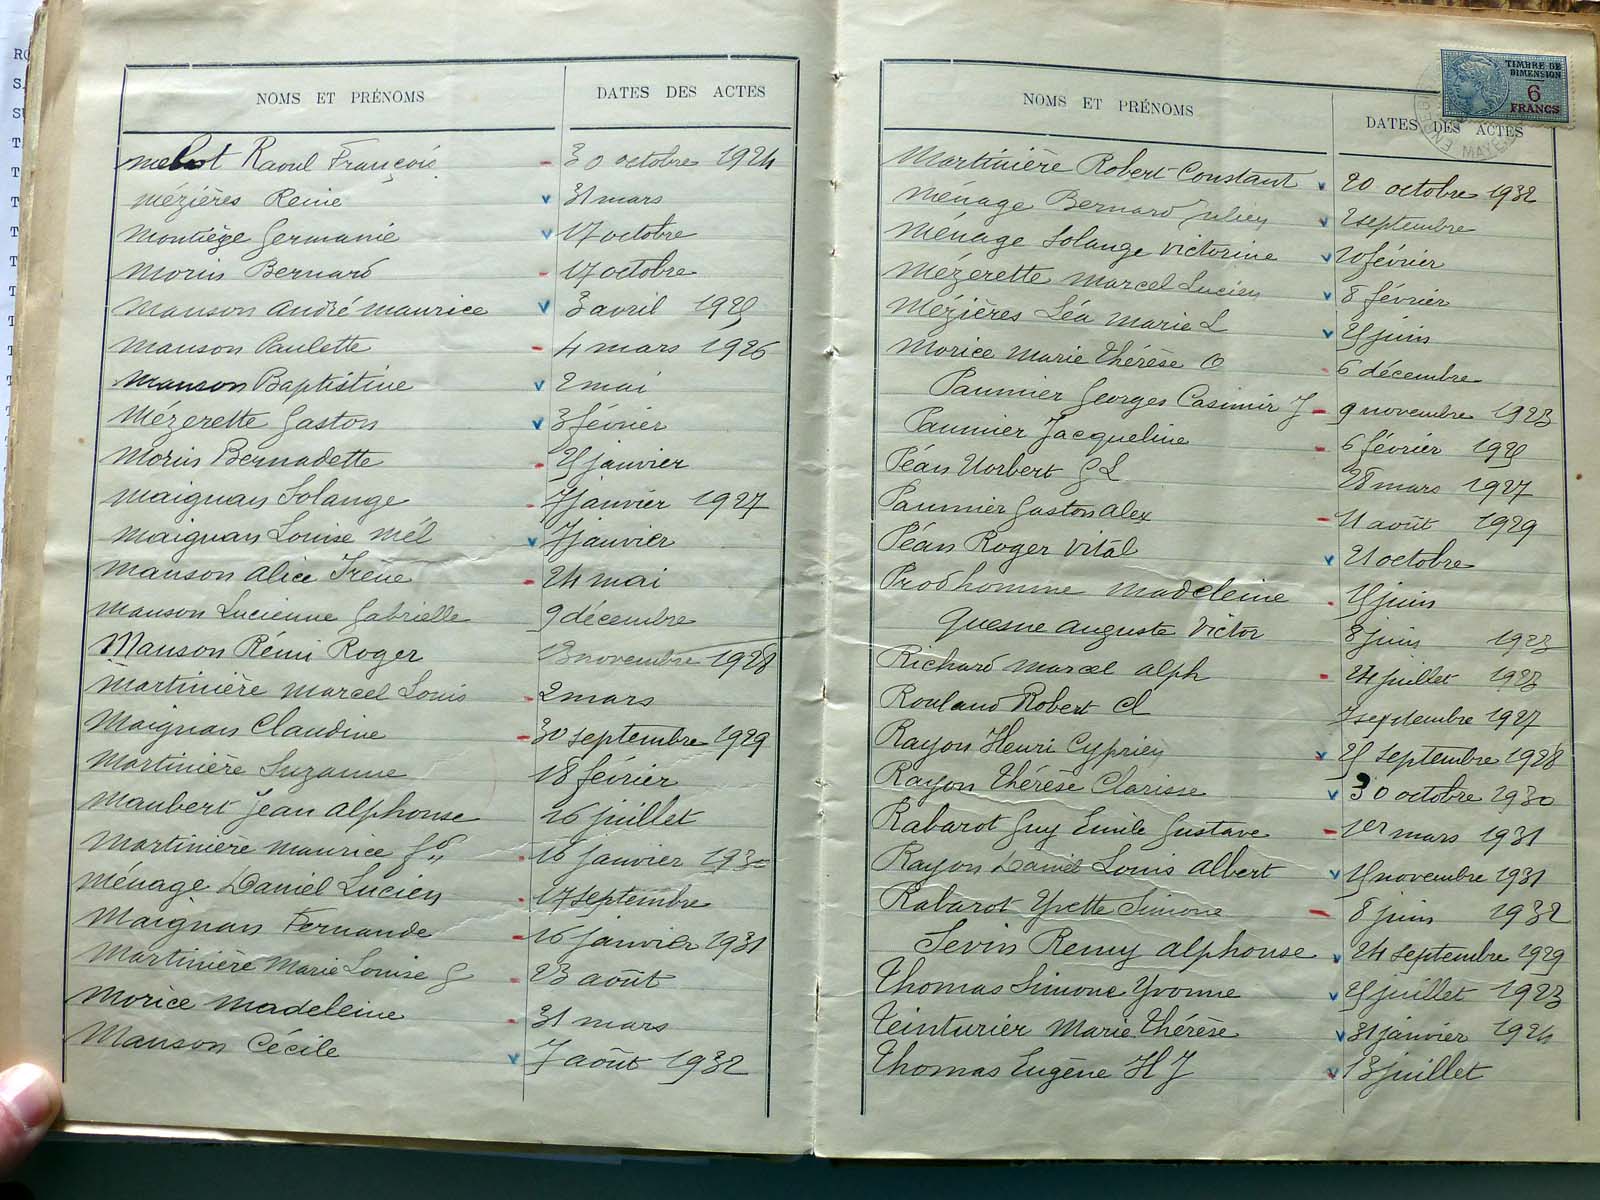 NOMS ET PRÉNOMS DATES DES ACTES
Raoul François 30 octobre 1924
Mézières Reine 31 mars
Montiège Germanie 17 octobre
Morin Bernard 17 octobre
Manson André Maurice 3 avril 1925
Manson Paulette 4 mars 1926
Manson Baptistine 2 mai
Mézerette Gaston 3 février
Morin Bernadette 25 janvier
Maignan Solange 7 janvier 1927
Maignan Louise Mél 7 janvier
Manson Alice Irène 24 mai
Manson Lucienne Gabrielle 9 décembre
Manson Rémi Roger 13 novembre 1928
Martinière Marcel Louis 2 mars
Maignan Claudine 30 septembre 1929
Martinière Suzanne 18 février
Maubert Jean Alphonse 26 juillet
Martinière Maurice 16 janvier 1930
Ménage Daniel Lucien 17 septembre
Maignan Fernande 16 janvier 1931
Martinière Marie Louise G 23 août
Morice Madeleine 31 mars
Manson Cécile 7 août 1932
TIMBRE DE DIMENSION
6 FRANCS
NOMS ET PRÉNOMS DATES DES ACTES
Martinière Robert Constant 20 octobre 1932
Ménage Bernard Julien 2 septembre
Ménage Solange Victorine 20 février
Mézerette Marcel Lucien 8 février
Mézières Léa Marie L 25 juin
Morice Marie Thérèse O 6 décembre
Paumier Georges Casimir J 9 novembre 1923
Paumier Jacqueline 6 février 1925
Péan Norbert G L 28 mars 1927
Paumier Gaston Alex 11 août 1929
Péan Roger Vital 21 octobre
Prodhomme Madeleine 15 juin
Quesne Auguste Victor 8 juin 1923
Richard Marcel Alph 24 juillet 1923
Rouland Robert Cl 7 septembre 1927
Rayon Henri Cyprien 25 septembre 1928
Rayon Thérèse Clarisse 30 octobre 1930
Rabarot Guy Emile Gustave 1er mars 1931
Rayon Daniel Louis Albert 15 novembre 1931
Rabarot Yvette Simone 8 juin 1932
Sevin Remy Alphonse 24 septembre 1929
Thomas Simone Yvonne 25 juillet 1923
Teinturier Marie Thérèse 31 janvier 1924
Thomas Eugène H J 13 juillet